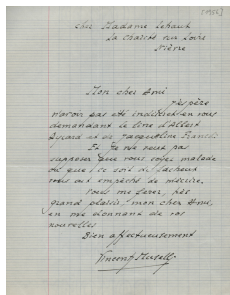 [1956]
chez Madame Lehault
La Charité sur Loire
Nièvre
Mon cher Ami
J'espère
n'avoir pas été indiscret en vous
demandant le livre d'Albert
et de Jacqueline Francis
Et je ne veux pas
supposer que vous soyez malade
ou que ce soit du fâcheux
vous ait empêché de m'écrire.
Vous me ferez, très
grand plaisir, mon cher Ami,
en me donnant de vos
nouvelles
Bien affectueusement
Vincent Muselli